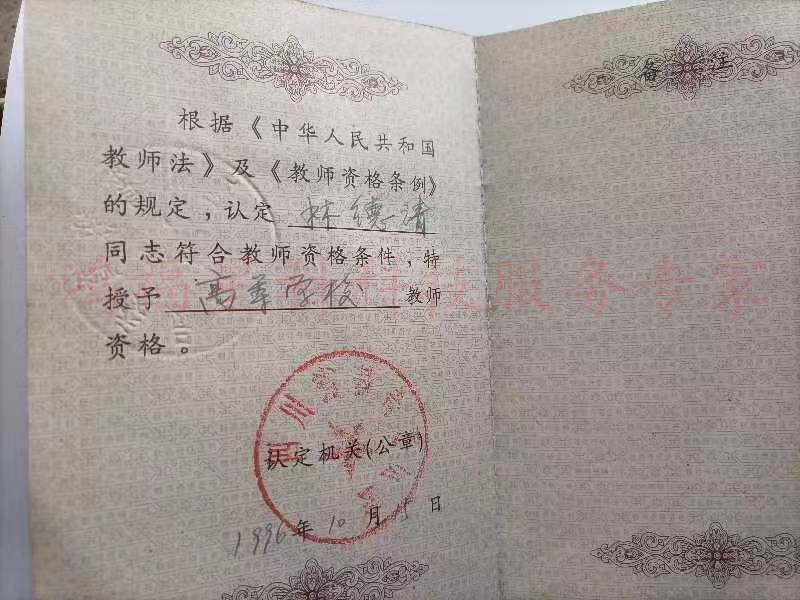 备注
根据《中华人民共和国
教师法》及《教师资格条例》
的规定，认定 林德清
同志符合教师资格条件，特
授予 高等学校 教师
资格。
认定机关(公章)
1996年10月15日
服务专家